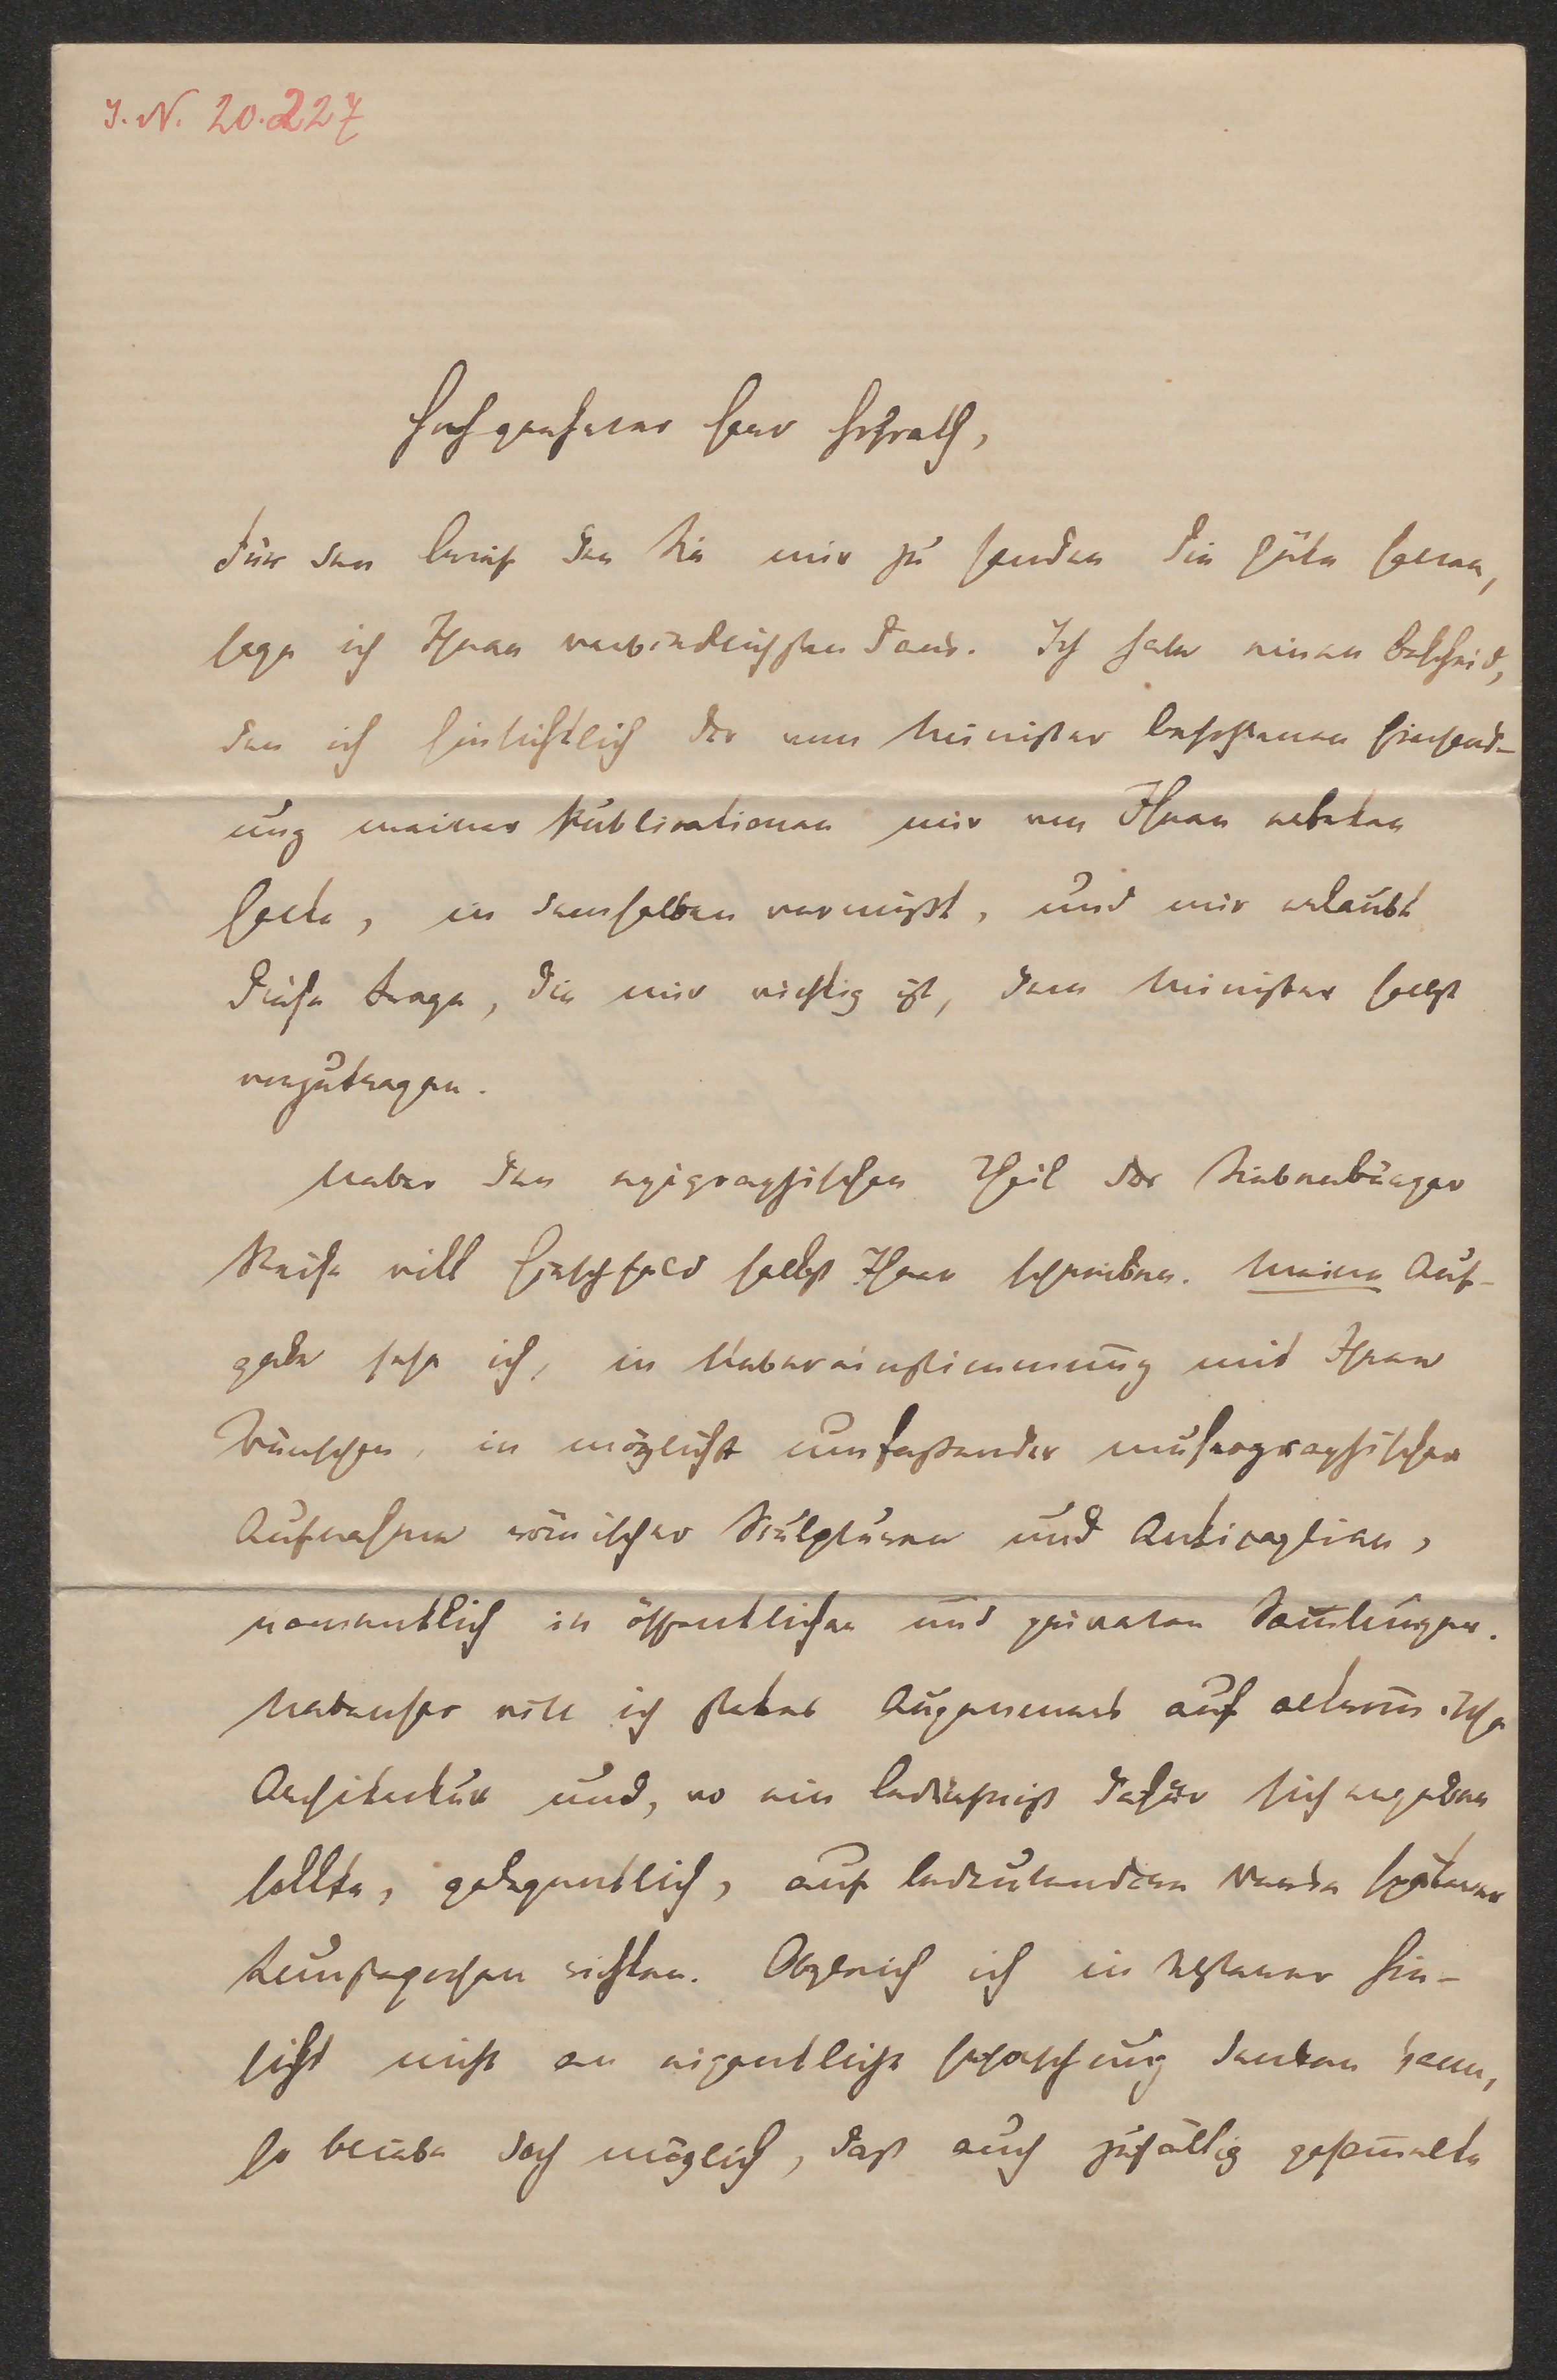 I. N. 20.227
Hochgeehrter Herr Hofrath,
Für den Brief den Sie mir zu senden die Güte hatten,
sage ich Ihnen verbindlichsten Dank. Ich habe einen Bescheid,
den ich hinsichtlich der vom Minister befohlenen Einsend-
ung meiner Publicationen mir von Ihnen erbeten
hatte, in demselben vermißt, und mir erlaubt
diese Frage, die mir wichtig ist, dem Minister selbst
vorzutragen.
Ueber den epigraphischen Theil der Siebenbürger
Reise will Hirschfeld selbst Ihnen schreiben. Meine Auf-
gabe sehe ich, in Uebereinstimmung mit Ihren
Wünschen, in möglichst umfaßender museographischer
Aufnahme römischer Sculpturen und Anticaglien,
namentlich in öffentlichen und privaten Sam̅lungen.
Nebenher will ich stetes Augenmerk auf altrömische
Architectur und, wo ein Bedürfniß dafür sich ergeben
sollte, gelegentlich, auf bedeutendere Werke späterer
Kunstepochen richten. Obgleich ich in letzterer Hin-
sicht nicht an eigentliche Forschung denken kann,
so bleibt doch möglich, daß auch zufällig gesam̅elte